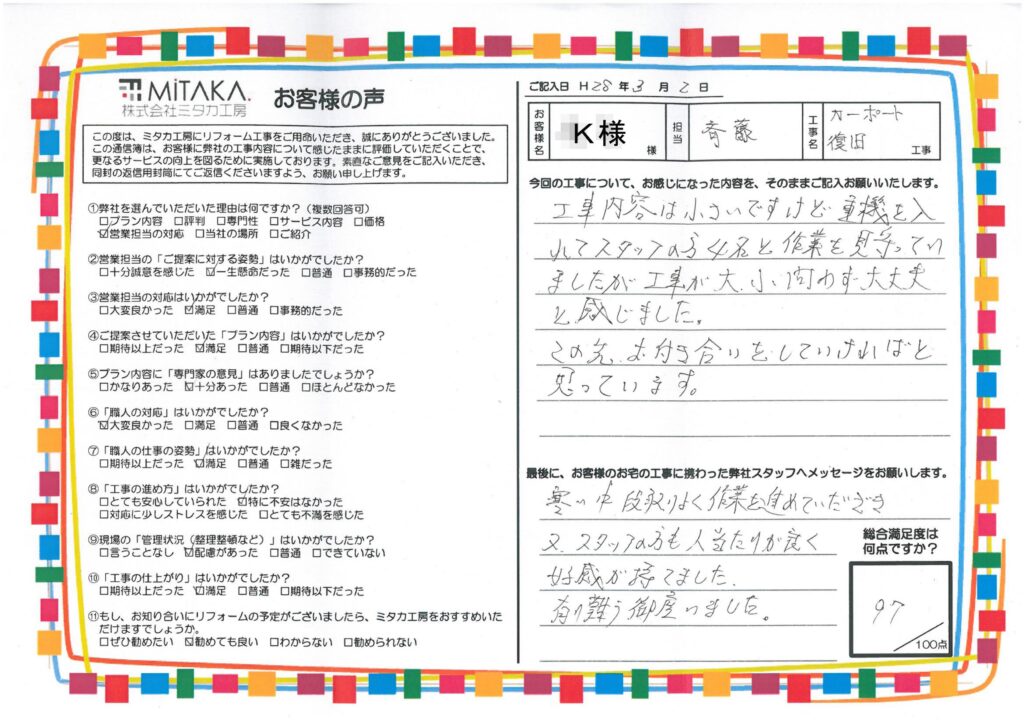 MiTAKA.
株式会社ミタカ工房
お客様の声
この度は、ミタカ工房にリフォーム工事をご用命いただき、誠にありがとうございました。
この通信簿は、お客様に弊社の工事内容について感じたままに評価していただくことで、
更なるサービスの向上を図るために実施しております。素直なご意見をご記入いただき、
同封の返信用封筒にてご返信くださいますよう、お願い申し上げます。
①弊社を選んでいただいた理由は何ですか?(複数回答可)
□プラン内容 □評判 □専門性 □サービス内容 □価格
☑営業担当の対応 □当社の場所 □ご紹介
②営業担当の「ご提案に対する姿勢」はいかがでしたか?
□十分誠意を感じた ☑一生懸命だった □普通 □事務的だった
③営業担当の対応はいかがでしたか?
□大変良かった ☑満足 □普通 □事務的だった
④ご提案させていただいた「プラン内容」はいかがでしたか?
□期待以上だった ☑満足 □普通 □期待以下だった
⑤プラン内容に「専門家の意見」はありましたでしょうか?
□かなりあった ☑十分あった □普通 □ほとんどなかった
⑥「職人の対応」はいかがでしたか?
☑大変良かった □満足 □普通 □良くなかった
⑦「職人の仕事の姿勢」はいかがでしたか?
□期待以上だった ☑満足 □普通 □雑だった
⑧「工事の進め方」はいかがでしたか?
□とても安心していられた ☑特に不安はなかった
□対応に少しストレスを感じた □とても不満を感じた
⑨現場の「管理状況(整理整頓など)」はいかがでしたか?
□言うことなし ☑配慮があった □普通 □できていない
⑩「工事の仕上がり」はいかがでしたか?
□期待以上だった ☑満足 □普通 □期待以下だった
⑪もし、お知り合いにリフォームの予定がございましたら、ミタカ工房をおすすめいた
だけますでしょうか。
□ぜひ勧めたい ☑勧めても良い □わからない □勧められない
ご記入日 H28 年 3 月 2 日
お客様名 K様 様 担当 斉藤 工事名 カーポート
復旧 工事
今回の工事について、お感じになった内容を、そのままご記入お願いいたします。
工事内容は小さいですけど重機を入
れてスタッフの方4名と作業を見守ってい
ましたが工事が大、小、問わず大丈夫
と感じました。
この先、お付き合いをしていければと
思っています。
最後に、お客様のお宅の工事に携わった弊社スタッフへメッセージをお願いします。
寒い中段取りよく作業を進めていただき
又、スタッフの方も人当たりが良く
好感が持てました、
有り難う御座いました。
総合満足度は
何点ですか?
97
/100点